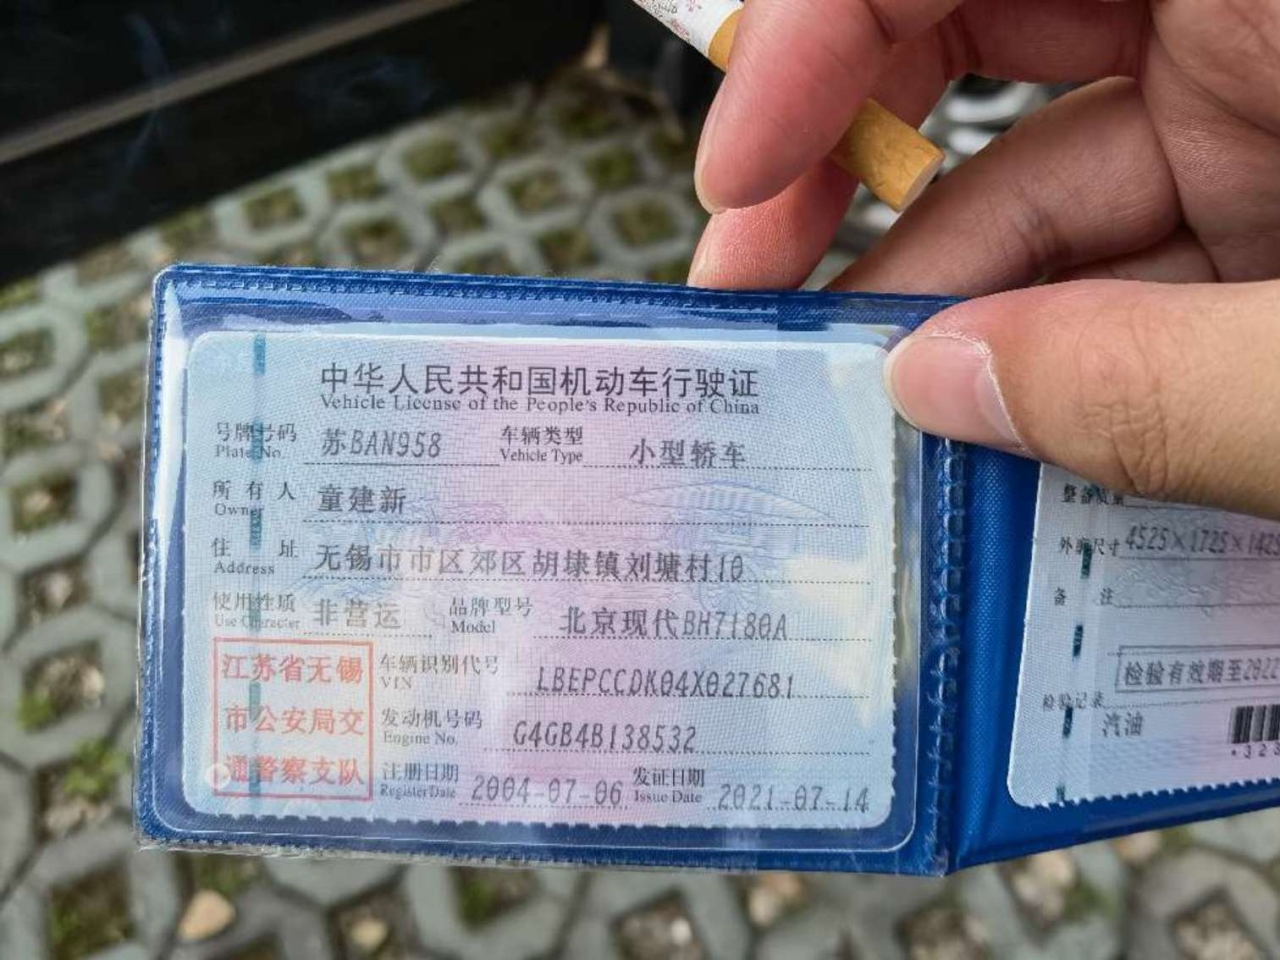 中华人民共和国机动车行驶证
Vehicle License of the People's Republic of China
号牌号码 苏BAN958 车辆类型 小型轿车
Plate No. Vehicle Type
所有人 童建新
Owner
住址 无锡市市区郊区胡埭镇刘塘村10
Address
使用性质 非营运 品牌型号 北京现代BH7180A
Use Character Model
江苏省无锡
市公安局交
通警察支队
车辆识别代号 LBEPCCDK04X027681
VIN
发动机号码 G4GB4B138532
Engine No.
注册日期 2004-07-06 发证日期 2021-07-14
Register Date Issue Date
整备质量
外廓尺寸 4525×1725×142
备注
检验有效期至2022
检验记录
汽油